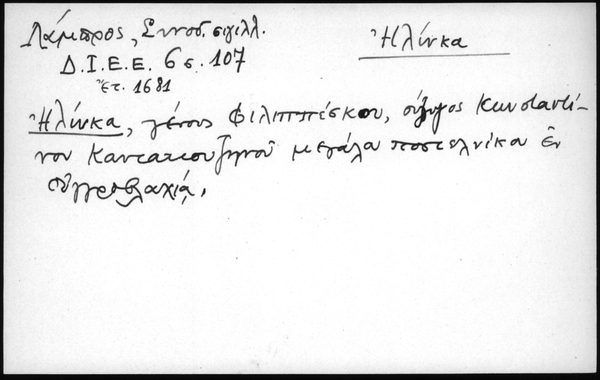 Λάμπρος, Συνοδ. σιγιλλ.
Ἠλίνκα
Δ.Ι.Ε.Ε. 6 σ. 107
Ἔτ. 1681
Ἠλίνκα, γένους Φιλιππέσκου, σύζυγος Κωνσταντί-
νου Καντακουζηνοῦ μεγάλα ποστελνίκα ἐν
Οὑγγροβλαχίᾳ,